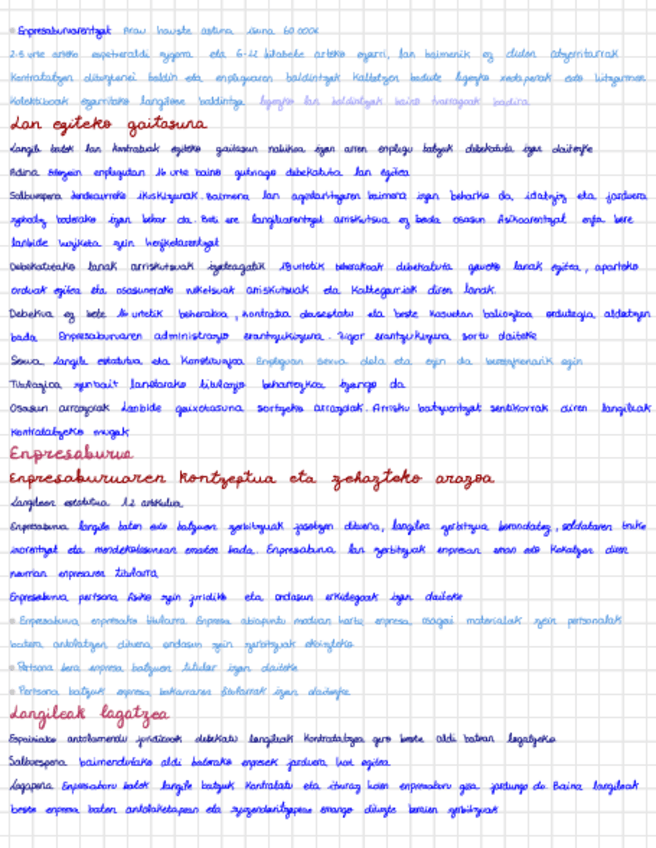 Enpresaburuarentzat arau hauste astuna isuna 60 000€
2-5 urte arteko espetxeraldi zigorra eta 6-12 hilabete arteko ezarri, lan baimenik ez duten atzerritarrak
kontratatzen dituztenei baldin eta enpleguaren baldintzek kaltetzen badute legezko xedapenak edo hitzarmen
kolektiboak ezarritako langileen baldintza legezko lan baldintzak baino txarragoak badira
Lan egiteko gaitasuna
Langile batek lan kontratuak egiteko gaitasun nahikoa izan arren enplegu batzuk debekatuta izan daitezke
Adina Edozein enplegutan 16 urte baino gutxiago debekatuta lan egitea
Salbuespena Jendaurreko ikuskizunak. Baimena lan agintaritzaren baimena izan beharko da, idatziz eta jarduera
zehatz baterako izan behar da. Beti ere langilearentzat arriskutsua ez bada osasun fisikoarentzat
lanbide heziketa zein hezkuntzarentzat
Debekatutako lanak arriskutsuak izateagatik 18 urtetik beherakoak debekatuta gaueko lanak egitea, aparteko
orduak egitea eta osasunerako neketsuak arriskutsuak eta kaltegarriak diren lanak.
Debekua ez bete 16 urtetik beherakoa, kontratua deusestatu eta beste kasuetan baliozkoa ordutegia aldatzen
bada Enpresaburuaren administrazio erantzukizuna. Zigor erantzukizuna sortu daiteke
Sexua Langile estatutua eta Konstituzioa Enpleguan sexua dela eta ezin da bereizkeriarik egin
Titulazioa zenbait lanetarako titulazio beharrezkoa izango da
Osasun arrazoiak Lanbide gaixotasuna sortzeko arrazoiak. Arrisku batzuentzat sentikorrak diren langileak
kontratatzeko mugak
Enpresaburua
Enpresaburuaren kontzeptua eta zehazteko arazoa
Langileen estatutua 1.2 artikulua
Enpresaburua langile baten edo batzuen zerbitzuak jasotzen dituena, langilea zerbitzua borondatez, soldataren truke
inorentzat eta mendekotasunean ematen bada. Enpresaburua lan zerbitzuak enpresan eman edo kokatzen diren
neurrian enpresaren titularra
Enpresaburua pertsona fisiko zein juridiko eta ondasun erkidegoak izan daiteke
Enpresaburua enpresako titularra Enpresa abiapuntu moduan hartu enpresa, osagai materialak zein pertsonalak
batera antolatzen dituena, ondasun zein zerbitzuak ekoizteko
Pertsona bera enpresa batzuen titular izan daiteke
Pertsona batzuk enpresa bakarraren titularrak izan daitezke
Langileak lagatzea
Espainiako antolamendu juridikoak debekatu langileak kontratatzea gero beste aldi batean lagatzeko
Salbuespena baimendutako aldi baterako enpresek jarduera hori egitea
Lagapena Enpresaburu batek langile batzuk kontratatu eta itxuraz haien enpresaburu gisa jardungo du. Baina langileak
beste enpresa baten antolaketapean eta zuzendaritzapean emango dituzte beraien zerbitzuak